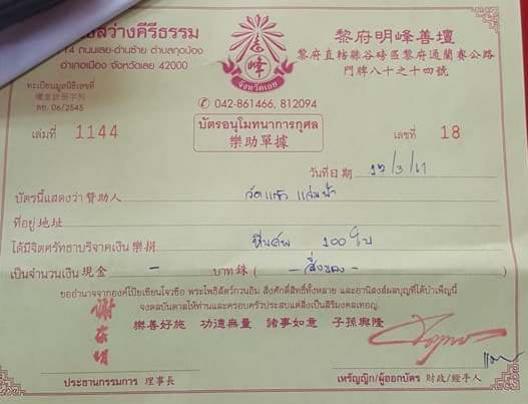 สว่างคีรีธรรม
ถนนเลย-ด่านซ้าย ตำบลกุดป่อง
อำเภอเมือง จังหวัดเลย 42000
ทะเบียนมูลนิธิเลขที่
ลย. 06/2545
明峰
จังหวัดเลย
黎府明峰善壇
黎府直轄縣谷磅區黎府通蘭賽公路
門牌八十之十四號
✆ 042-861466, 812094
บัตรอนุโมทนาการกุศล
樂助單據
เล่มที่ 1144
เลขที่ 18
วันที่日期 12/3/61
บัตรนี้แสดงว่า 贊助人
ที่อยู่ 地址
ได้มีจิตศรัทธาบริจาคเงิน 樂捐 หีบศพ 100 ใบ
เป็นจำนวนเงิน 現金 - บาท銖 ( - สิ่งของ - )
ขออำนาจจากองค์โป๊ยเซียนโจวซือ พระโพธิสัตว์กวนอิม สิ่งศักดิ์สิทธิ์ทั้งหลาย และอานิสงส์ผลบุญที่ได้บำเพ็ญนี้
จงดลบันดาลให้ท่านและครอบครัวประสบแต่สิ่งเป็นสิริมงคลเทอญ.
樂善好施 功德無量 諸事如意 子孫興隆
ประธานกรรมการ 理事長
เหรัญญิก/ผู้ออกบัตร 財政/經手人